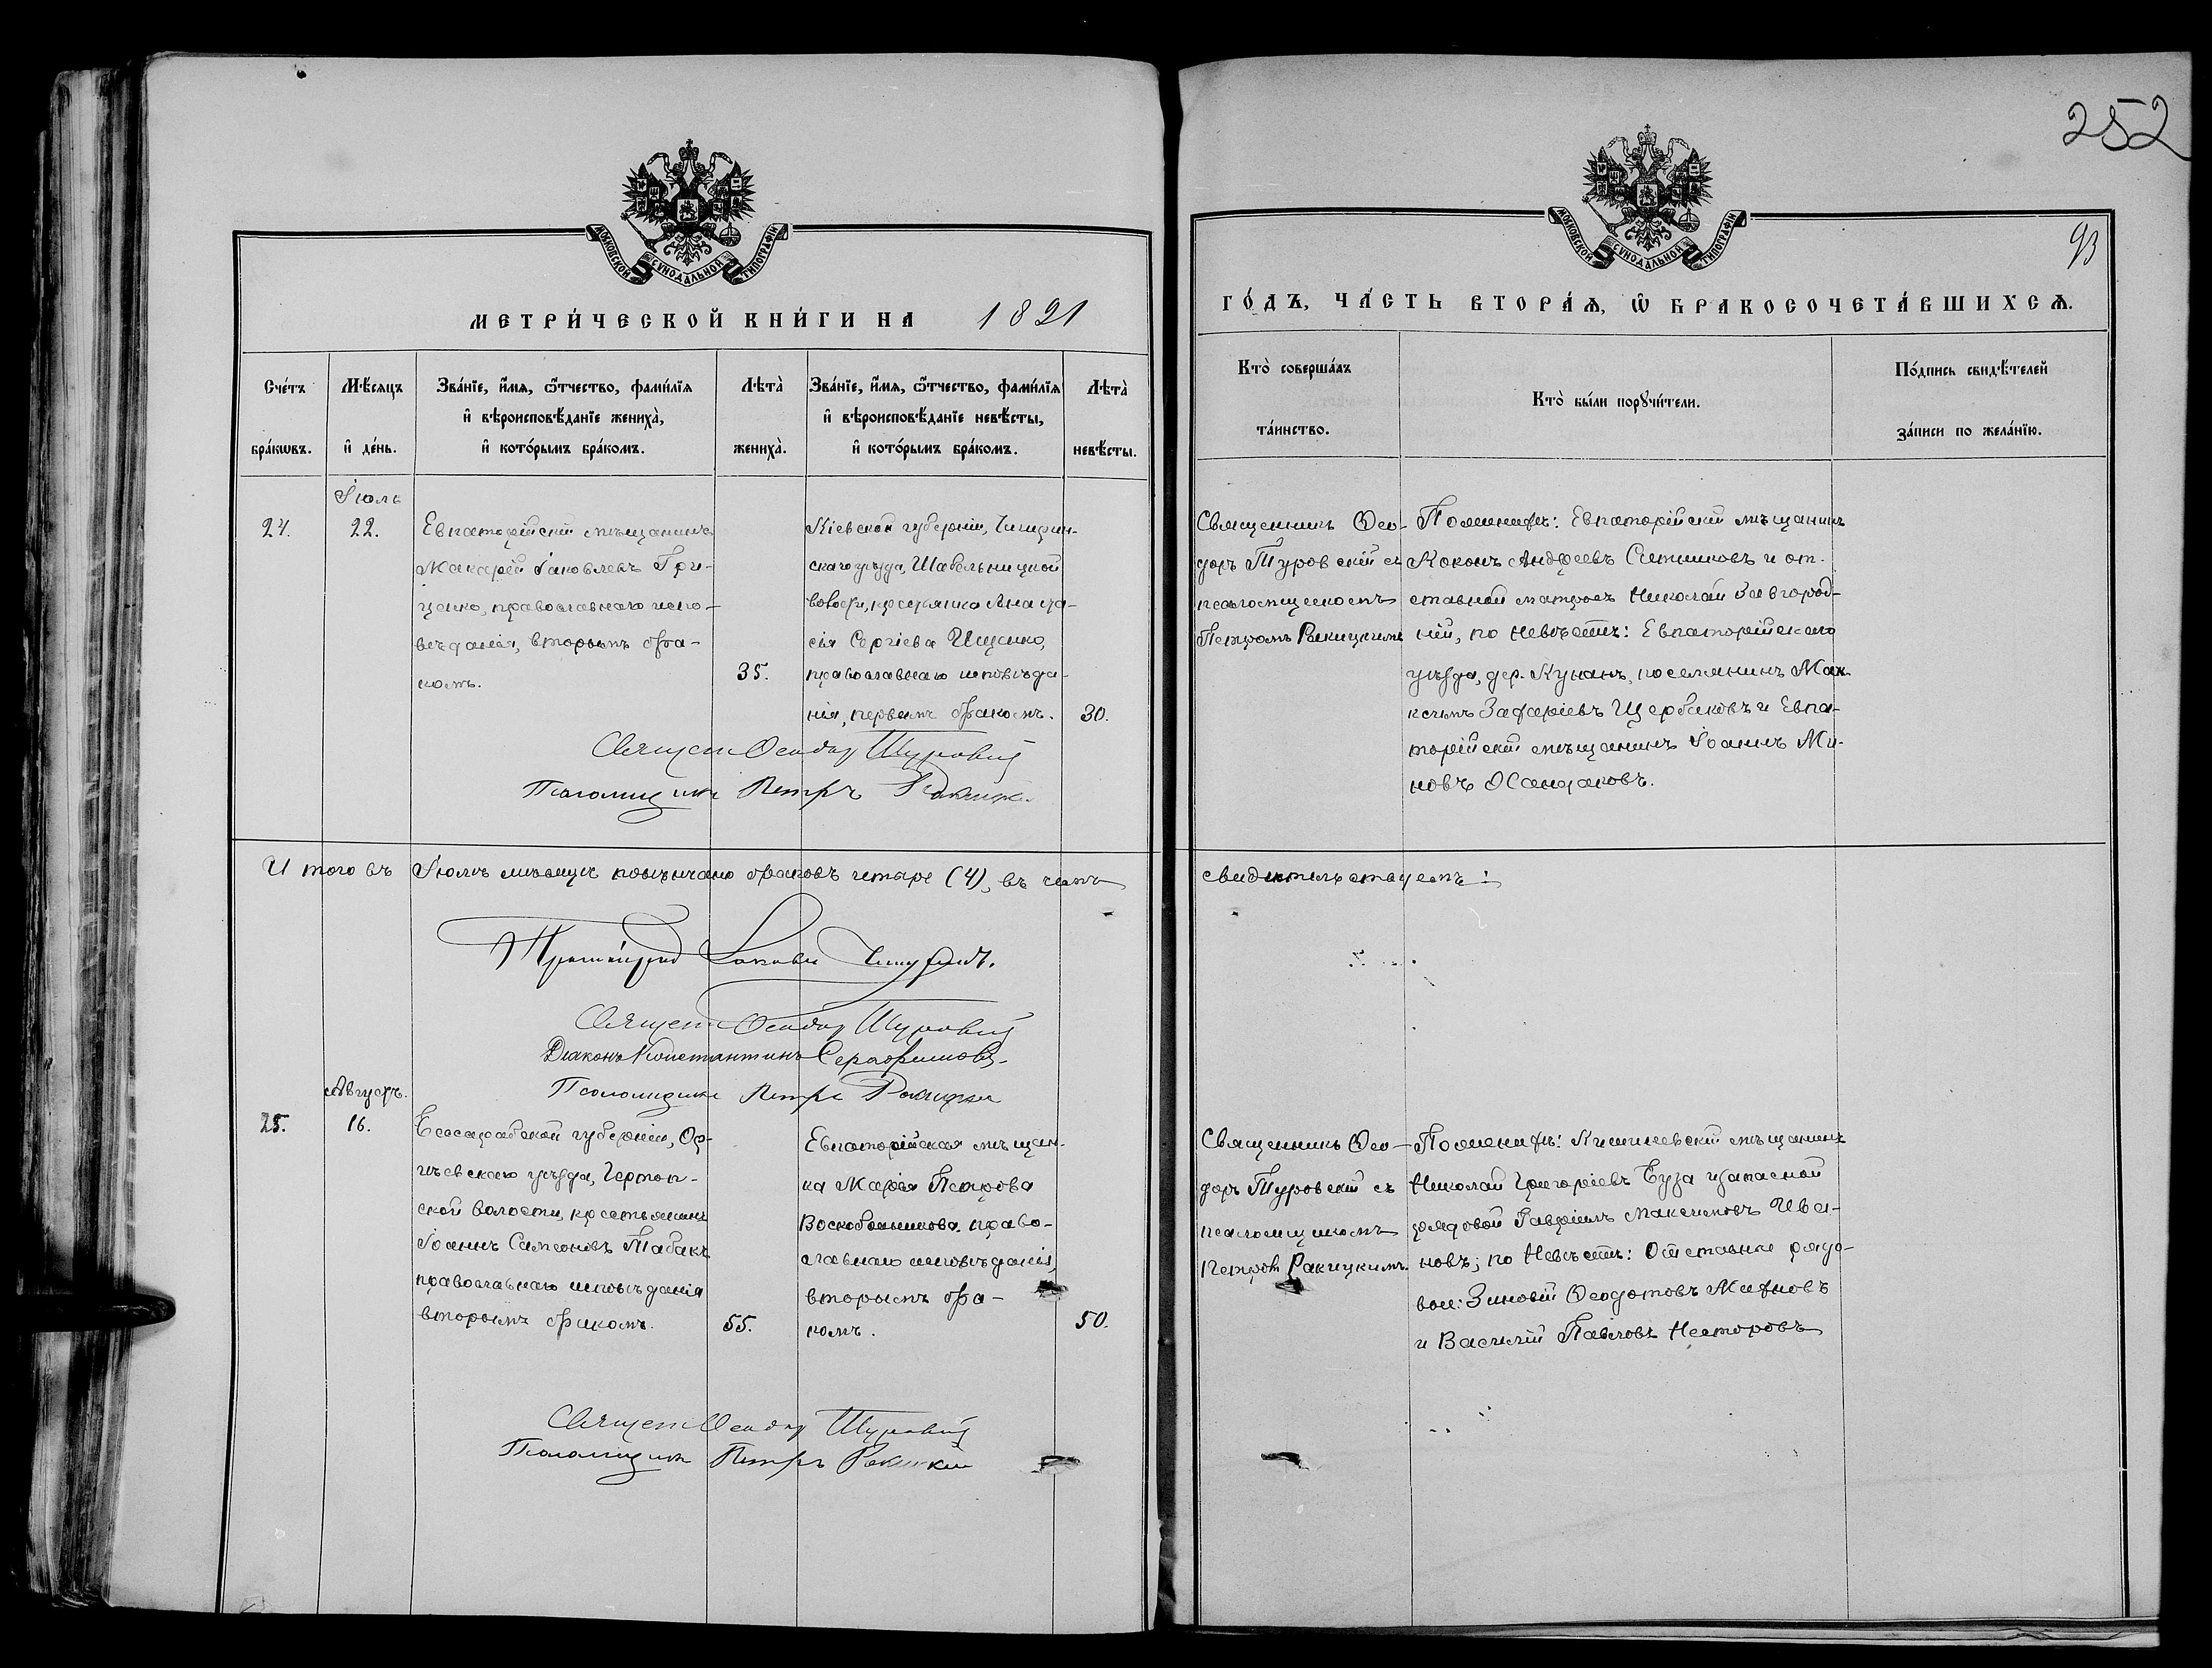 252
93
МОСКОВСКОЙ СѴНОДАЛЬНОЙ ТИПОГРАФІИ
МОСКОВСКОЙ СѴНОДАЛЬНОЙ ТИПОГРАФІИ
МЕТРИ́ЧЕСКОЙ КНИ́ГИ НА 1891
ГО́ДЪ, ЧА́СТЬ ВТОРА́Ѧ, Ѽ БРАКОСОЧЕТА́ВШИХСѦ.
Сче́тъ бра́кѡвъ.
Мѣ́сяцъ и҆ де́нь.
Зва́нїе, и҆́мѧ, ѻ҆́тчество, фами́лїѧ
и҆ вѣроисповѣ́данїе жениха̀,
и҆ кото́рымъ бра́комъ.
Лѣта̀ жениха̀.
Зва́нїе, и҆́мѧ, ѻ҆́тчество, фами́лїѧ
и҆ вѣроисповѣ́данїе невѣ́сты,
и҆ кото́рымъ бра́комъ.
Лѣта̀ невѣ́сты.
Кто̀ соверша́лъ
та́инство.
Кто̀ бы́ли порꙋчи́тели.
По́дпись свидѣ́телей
за́писи по жела́нїю.
Іюль
24.
22.
Евпаторійскій мѣщанинъ
Макарій Іаковлевъ Гри-
ценко, православнаго испо-
вѣданія, вторымъ бра-
комъ.
35.
Кіевской губерніи, Чигирин-
скаго уѣзда, Шабельницкой
волости, крестьянка Анаста-
сія Сергіева Ищенко,
православнаго исповѣда-
нія, первымъ бракомъ.
30.
Священникъ Ѳео-
доръ Туровскій съ
псаломщикомъ
Петромъ Ракицкимъ
По женихѣ: Евпаторійскій мѣщанинъ
Кононъ Андреевъ Ситниковъ и от-
ставной матросъ Николай Завгород-
ній, по невѣстѣ: Евпаторійскаго
уѣзда, дер. Кунанъ, поселянинъ Мак-
симъ Захаріевъ Щербаковъ и Евпа-
торійскій мѣщанинъ Іоаннъ Ми-
новъ
Священ Ѳеодор Туровскій
Псаломщикъ Петръ Ракицкій
И того въ Іюлѣ мѣсяцѣ повѣнчано браковъ четыре (4), въ чемъ
свидѣтельствуемъ:
Протоіерей Іаковъ
Священ Ѳеодор Туровскій
Діаконъ Константинъ Серафимовъ
Псаломщикъ Петръ Ракицкій
Августъ.
25.
16.
Бессарабской губерніи, Ор-
гѣевскаго уѣзда,
ской волости, крестьянинъ
Іоаннъ Самсоновъ Табакъ
православнаго исповѣданія
вторымъ бракомъ.
55.
Евпаторійская мѣщан-
ка Марія Петрова
Воскобойникова, право-
славнаго исповѣданія,
вторымъ бра-
комъ.
50.
Священникъ Ѳео-
доръ Туровскій съ
псаломщикомъ
Петром Ракицкимъ.
По женихѣ: Кишиневскій мѣщанинъ
Николай Григоріевъ Буза и запасной
рядовой Гавріилъ Максимовъ Ива-
новъ; по невѣстѣ: Отставные рядо-
вые: Зиновій Ѳеодотовъ
и Василій Павловъ Несторовъ
Священ Ѳеодор Туровскій
Псаломщикъ Петръ Ракицкій